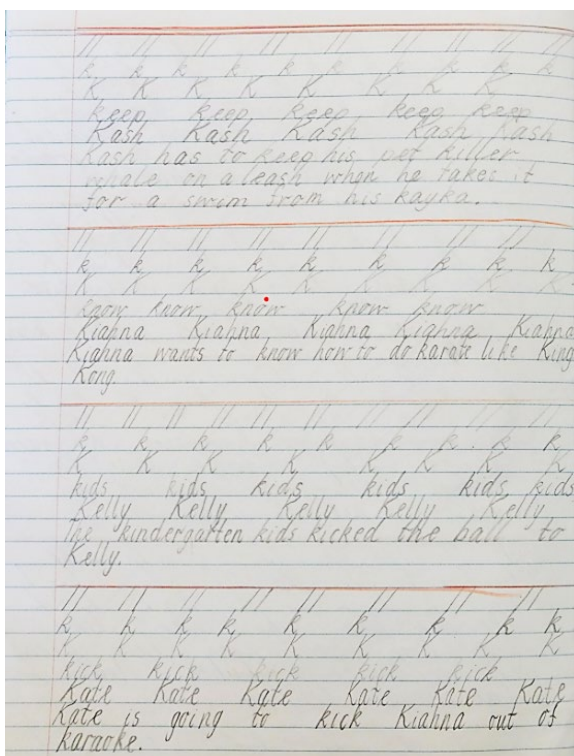 k k k k k k k k k
K K K K K K K K
keep keep keep keep keep
Kash Kash Kash Kash Kash
Kash has to keep his pet killer
whale on a leash when he takes it
for a swim from his kayka.
k k k k k k k k k
K K K K K K K K K
know know know know know
Kiahna Kiahna Kiahna Kiahna Kiahna
Kiahna wants to know how to do karate like King
Kong.
k k k k k k k k k
K K K K K K K K
kids kids kids kids kids kids
Kelly Kelly Kelly Kelly Kelly
The kindergarten kids kicked the ball to
Kelly.
k k k k k k k k k
K K K K K K K K K
kick kick kick kick kick
Kate Kate Kate Kate Kate Kate
Kate is going to kick Kiahna out of
karaoke.